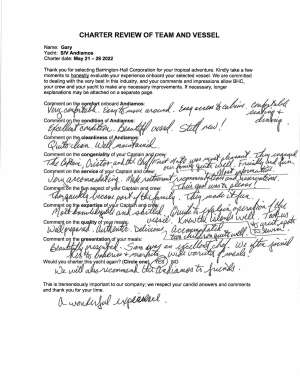 CHARTER REVIEW OF TEAM AND VESSEL
Name: Gary
Yacht: S/V Andiamos
Charter date: May 21 - 26 2022
Thank you for selecting Barrington-Hall Corporation for your tropical adventure. Kindly take a few
moments to honestly evaluate your experience onboard your selected vessel. We are committed
to dealing with the very best in this industry, and your comments and impressions allow BHC,
your crew and your yacht to make any necessary improvements. If necessary, longer
explanations may be attached on a separate page.
Comment on the comfort onboard Andiamos:
Very comfortable. Easy to move around. Easy access to cabins. Comfortable
seating &
dining.
Comment on the condition of Andiamos:
Excellent condition. Beautiful vessel. Still new!
Comment on the cleanliness of Andiamos:
Quite clean. Well maintained.
Comment on the congeniality of your Captain and crew:
The Captain, and the Chef were most pleasant. They engaged
our family quite well. Friendly and fun.
Comment on the service of your Captain and crew:
Very accommodating. Made recommendations and reservations.
Their goal was to please!
Comment on the fun aspect of your Captain and crew:
They quickly became part of the family. They made it fun.
Comment on the expertise of your Captain and crew:
Most knowledgeable and skilled.
Comment on the quality of your meals:
Well prepared. Authentic. Delicious. Accomplished
Comment on the presentation of your meals:
Beautifully presented. an excellent chef. We often joined
variety of meals!
Would you charter this yacht again? (Circle one) YES / NO
We will also recommend the Andiamos to friends.
This is tremendously important to our company; we respect your candid answers and comments
and thank you for your time.
A wonderful experience.